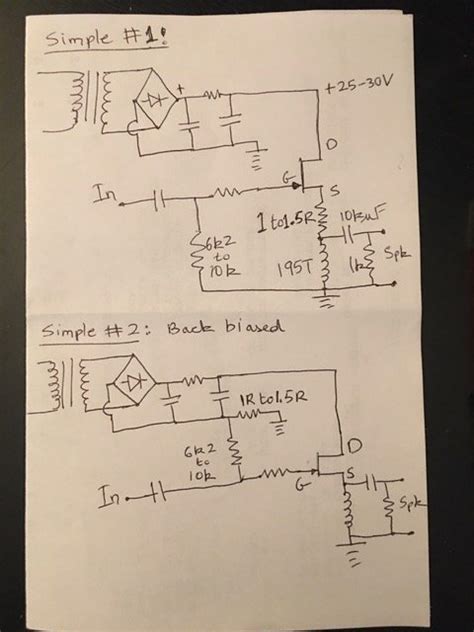 Simple #1!
+
+25-30V
D
In
G
S
1 to 1.5R
10kuF
6k2
to
10k
195T
1k
Spk
Simple #2: Back biased
1R to 1.5R
6k2
to
10k
D
In
G
S
Spk